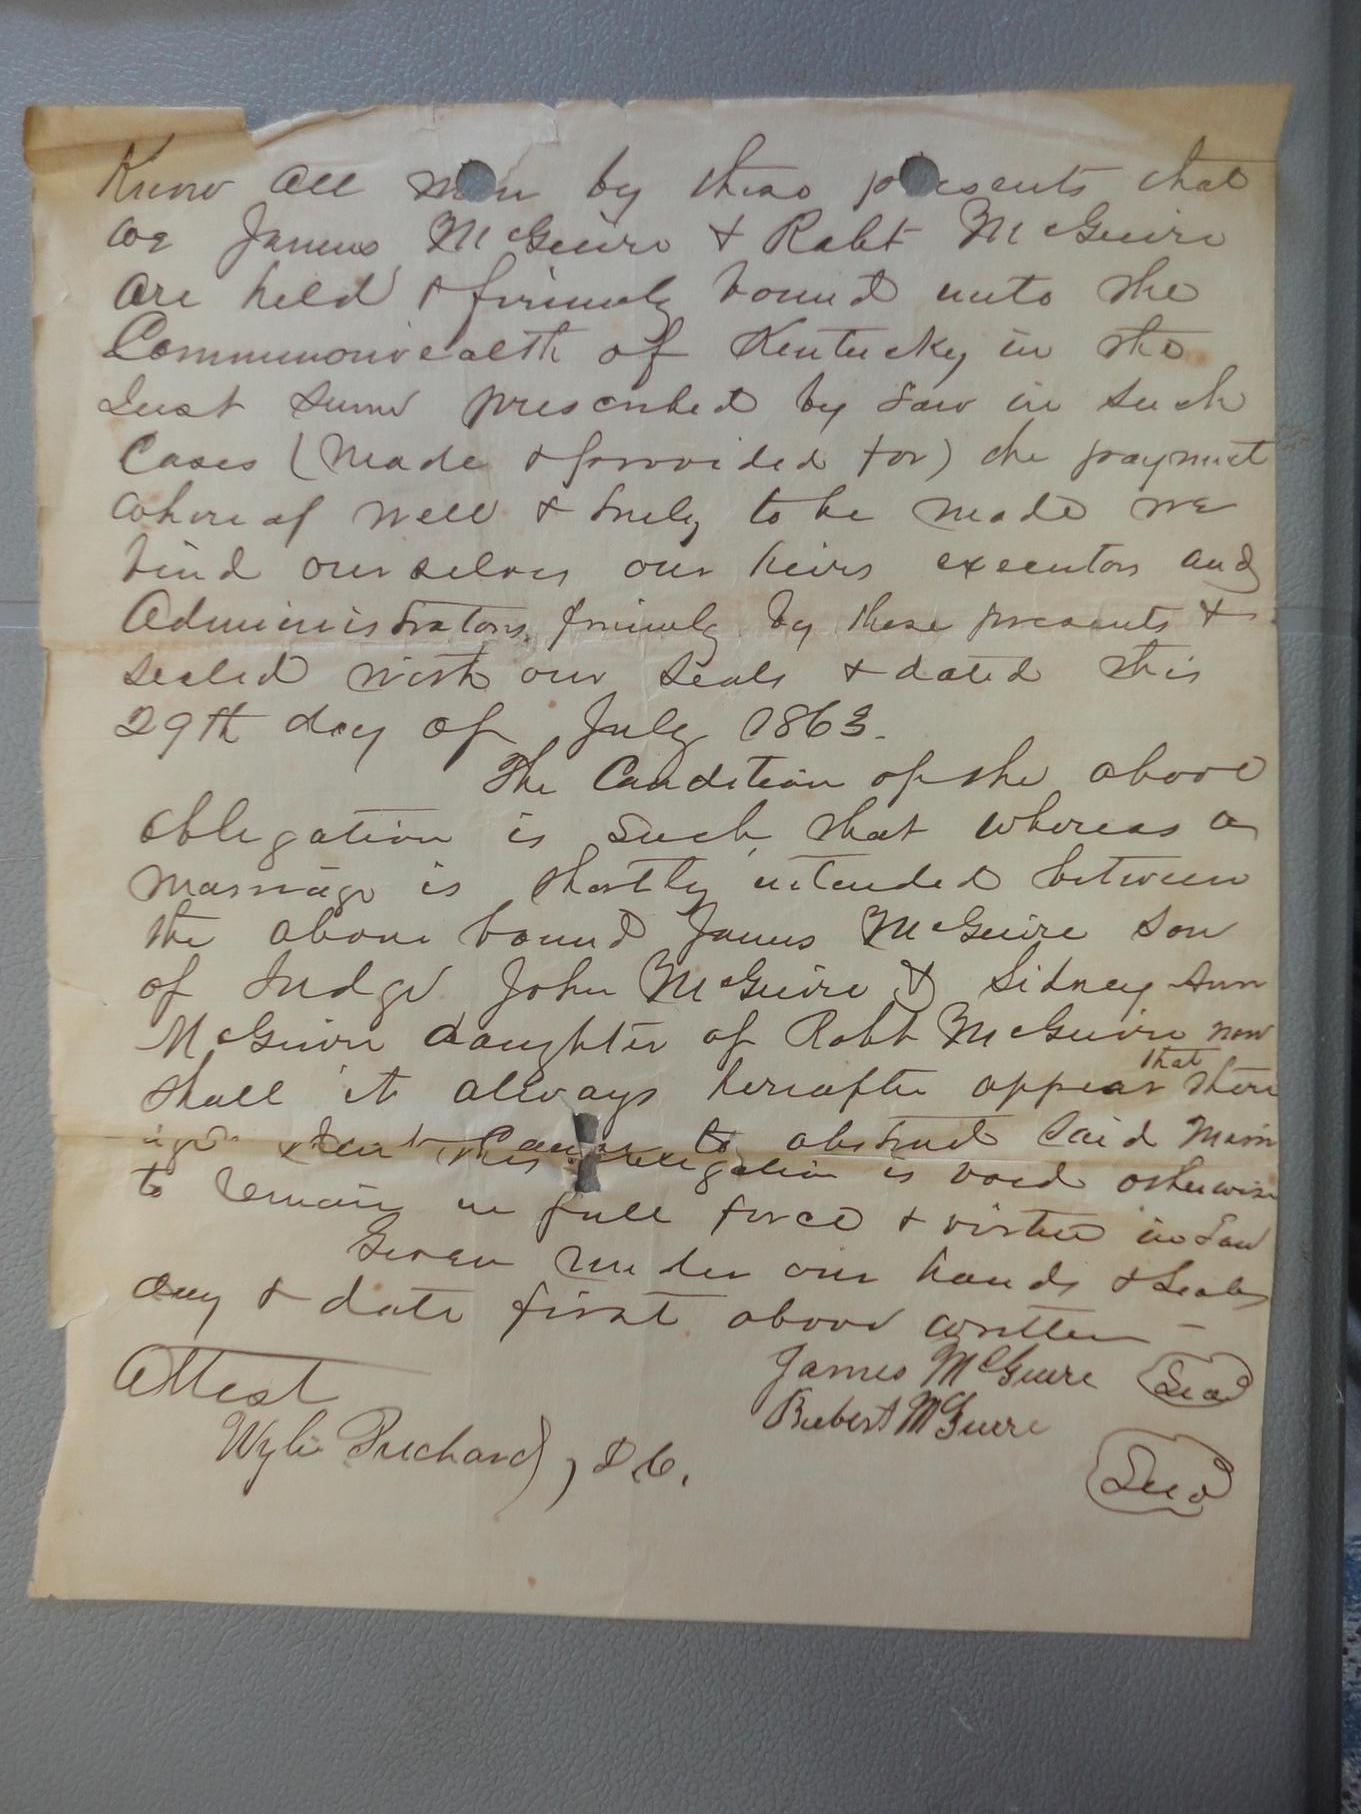 Know all men by these presents that
we James McGuire & Robt McGuire
are held & firmly bound unto the
Commonwealth of Kentucky in the
Just sum prescribed by Law in such
Cases (made & provided for) the payment
whereof well & truly to be made we
bind ourselves our heirs executors and
Administrators firmly by these presents &
sealed with our seals & dated this
29th day of July 1863.
The Condition of the above
obligation is such that whereas a
marriage is shortly intended between
the above bound James McGuire Son
of Judge John McGuire & Sidney Ann
McGuire daughter of Robt McGuire now
that
shall it always hereafter appear there
Cause to obstruct Said Marri
age then this obligation is void otherwise
to remain in full force & virtue in Law
Given under our hands & seals
day & date first above written -
James McGuire Seal
Attest
Robert McGuire
Wylie Prichard, D C.
Seal